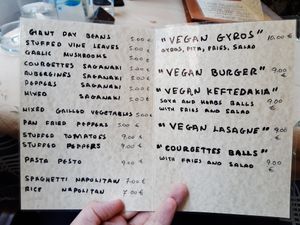 GIANT DAY BEANS 5.00 €
STUFFED VINE LEAVES 5.00 €
GARLIC MUSHROOMS 5.00 €
COURGETTES SAGANAKI 5.00 €
AUBERGINES SAGANAKI 5.00 €
PEPPERS SAGANAKI 5.00 €
MIXED SAGANAKI 5.00 €
MIXED GRILLED VEGETABLES 5.00 €
PAN FRIED PEPPERS 5.00 €
STUFFED TOMATOES 9.00 €
STUFFED PEPPERS 9.00 €
PASTA PESTO 9.00 €
SPAGHETTI NAPOLITAN 7.00 €
RICE NAPOLITAN 7.00 €
"VEGAN GYROS" 10.00 €
GYROS, PITA, FRIES, SALAD
"VEGAN BURGER" 9.00 €
"VEGAN KEFTEDAKIA"
SOYA AND HERBS BALLS 9.00 €
WITH FRIES AND SALAD
"VEGAN LASAGNE" 9.00 €
"COURGETTES BALLS"
WITH FRIES AND SALAD 9.00 €